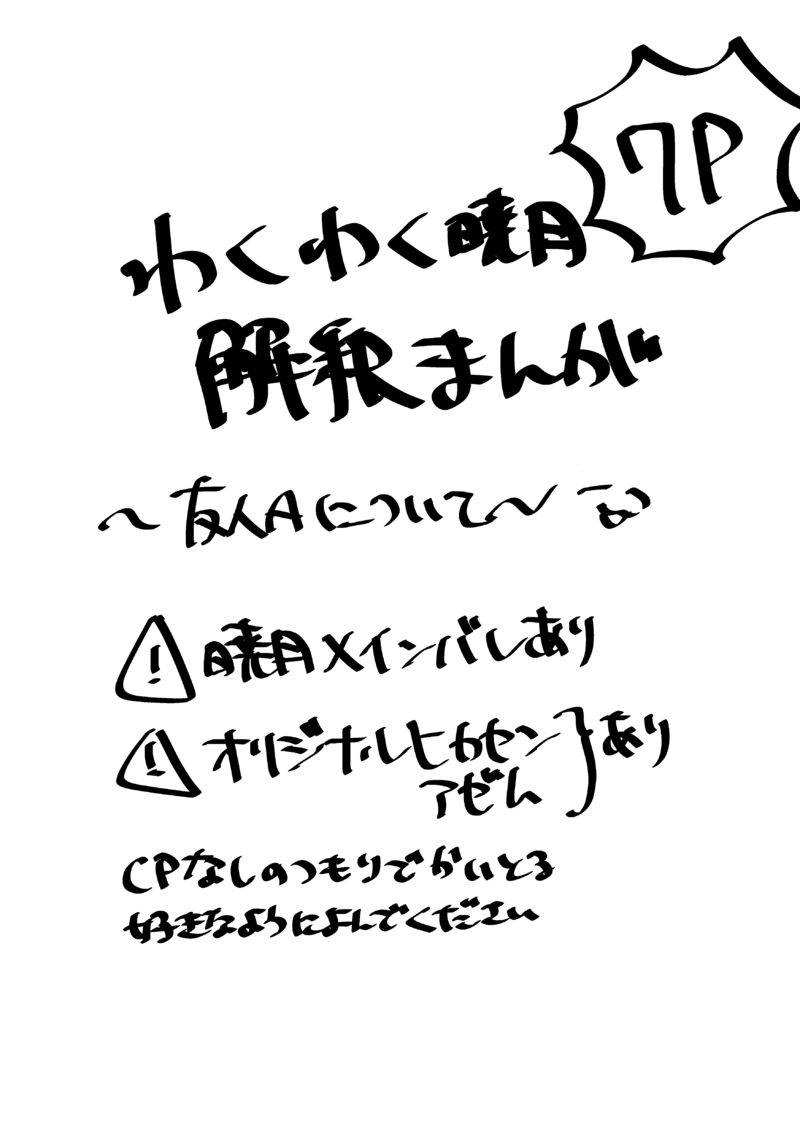 7P
わくわく暁月
解釈まんが
～友人Aについて～
⚠暁月メインバレあり
⚠オリジナルヒカセン
アゼム
}あり
CPなしのつもりでかいとる
好きなようによんでください